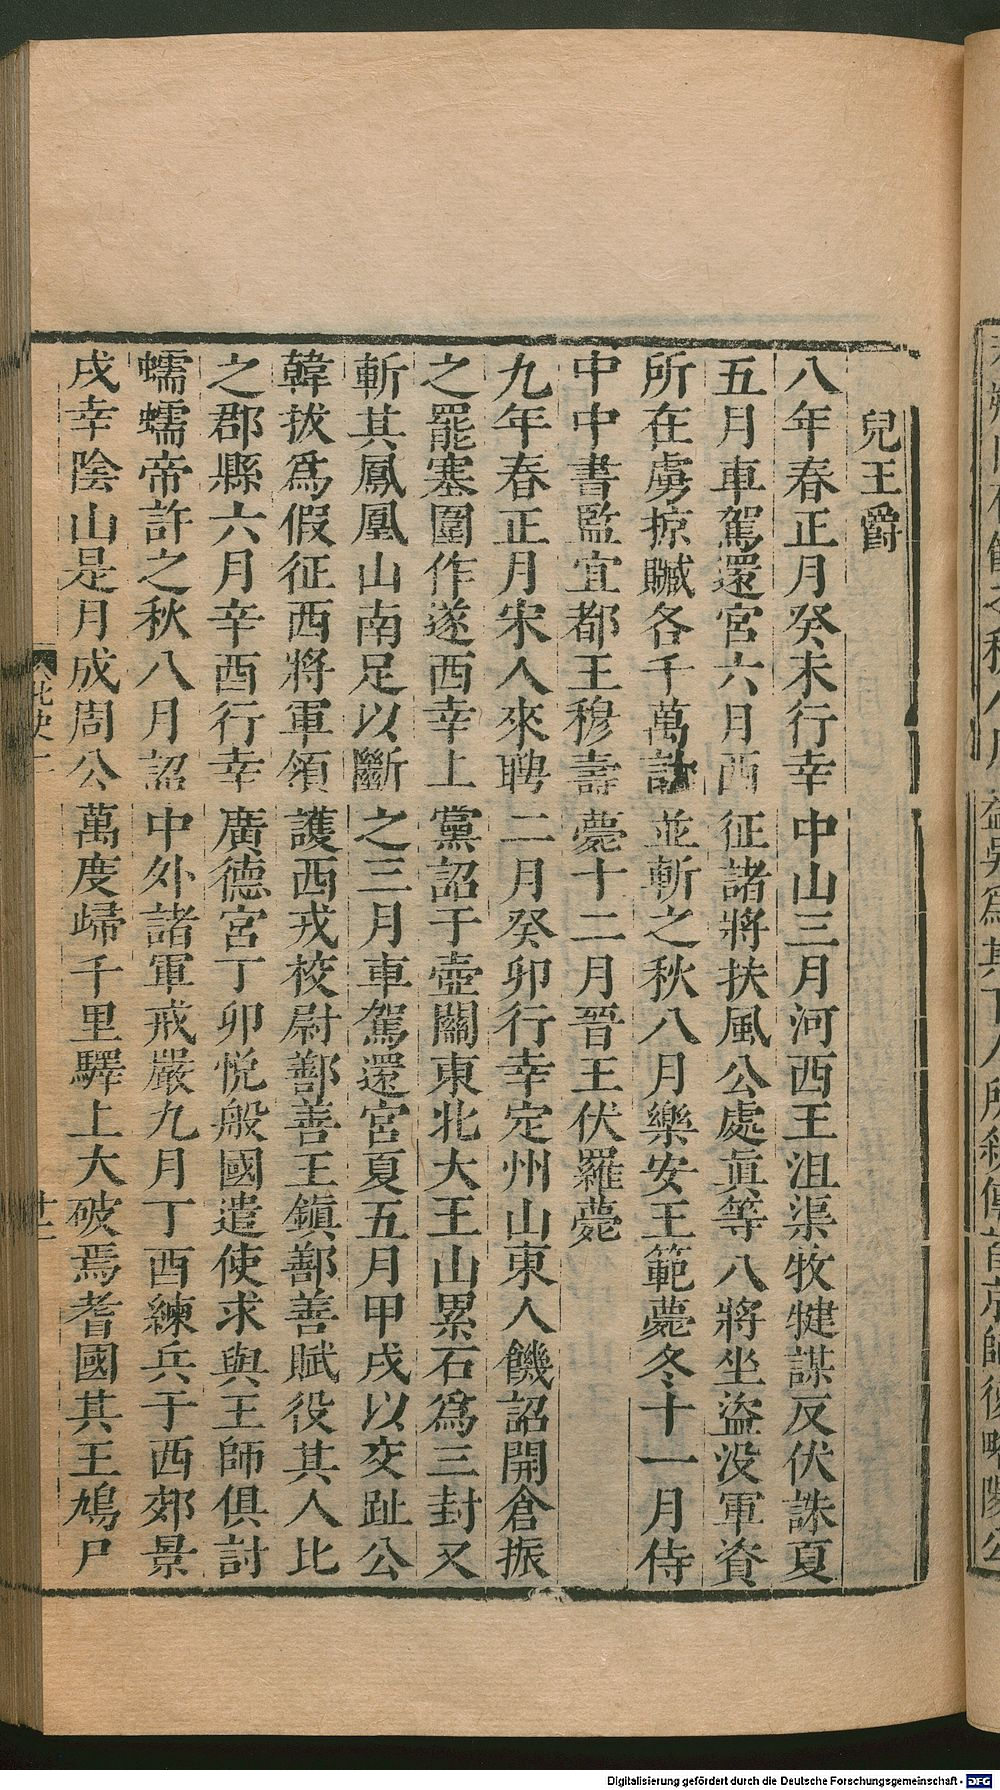 兒王爵
八年春正月癸未行幸中山三月河西王沮渠牧犍謀反伏誅夏
五月車駕還宮六月西征諸將扶風公處眞等八將坐盜没軍資
所在虜掠贓各千萬計並斬之秋八月樂安王範薨冬十一月侍
中中書監宜都王穆壽薨十二月晉王伏羅薨
九年春正月宋人來聘二月癸卯行幸定州山東人饑詔開倉振
之罷塞圍作遂西幸上黨詔于壺關東北大王山累石爲三封又
斬其鳳凰山南足以斷之三月車駕還宮夏五月甲戌以交趾公
韓拔爲假征西將軍領護西戎校尉鄯善王鎭鄯善賦役其人比
之郡縣六月辛酉行幸廣德宮丁卯悅般國遣使求與王師俱討
蠕蠕帝許之秋八月詔中外諸軍戒嚴九月丁酉練兵于西郊景
戌幸陰山是月成周公萬度歸千里驛上大破焉耆國其王鳩尸
北史二
廿二
Digitalisierung gefördert durch die Deutsche Forschungsgemeinschaft - DFG